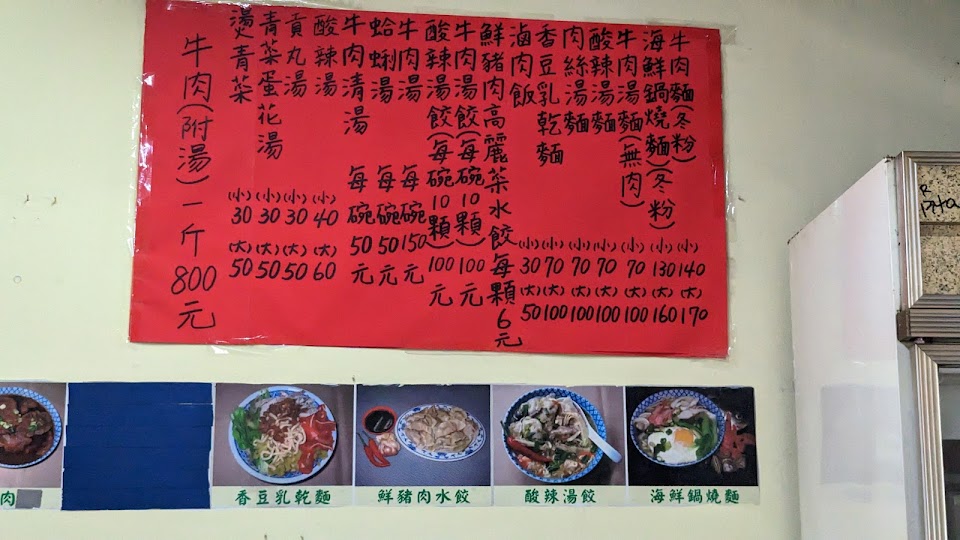 牛肉麵(冬粉)(小)140(大)170
海鮮鍋燒麵(冬粉)(小)130(大)160
牛肉湯麵(無肉)(小)70(大)100
酸辣湯麵(小)70(大)100
肉絲湯麵(小)70(大)100
香豆乳乾麵(小)70(大)100
滷肉飯(小)30(大)50
鮮豬肉高麗菜水餃每顆6元
牛肉湯餃(每碗10顆)100元
酸辣湯餃(每碗10顆)100元
牛肉湯每碗150元
蛤蜊湯每碗50元
牛肉清湯每碗50元
酸辣湯(小)40(大)60
貢丸湯(小)30(大)50
青菜蛋花湯(小)30(大)50
燙青菜(小)30(大)50
牛肉(附湯)一斤800元
肉
香豆乳乾麵
鮮豬肉水餃
酸辣湯餃
海鮮鍋燒麵